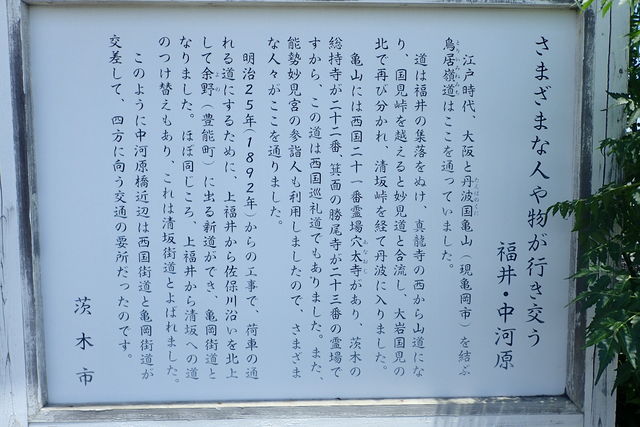 さまざまな人や物が行き交う
福井・中河原
江戸時代、大阪と丹波国亀山（現亀岡市）を結ぶ
鳥居嶺道はここを通っていました。
道は福井の集落をぬけ、真龍寺の西から山道にな
り、国見峠を越えると妙見道と合流し、大岩国見の
北で再び分かれ、清坂峠を経て丹波に入りました。
亀山には西国二十一番霊場穴太寺があり、茨木の
総持寺が二十二番、箕面の勝尾寺が二十三番の霊場で
すから、この道は西国巡礼道でもありました。また、
能勢妙見宮の参詣人も利用しましたので、さまざま
な人々がここを通りました。
明治25年(1892年)からの工事で、荷車の通
れる道にするために、上福井から佐保川沿いを北上
して余野（豊能町）に出る新道ができ、亀岡街道と
なりました。ほぼ同じころ、上福井から清坂への道
のつけ替えもあり、これは清坂街道とよばれました。
このように中河原橋近辺は西国街道と亀岡街道が
交差して、四方に向う交通の要所だったのです。
茨木市